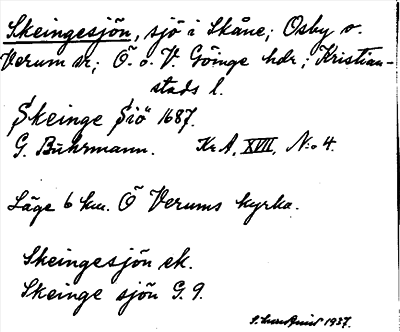 Skeingesjön, sjö i Skåne; Osby o.
Verum sr; Ö. o. V. Göinge hdr; Kristian-
stads l.
Skeinge Siö 1687.
G. Buhrmann. Kr A, XVII, No 4.
Läge 6 km. Ö Verums kyrka.
Skeingesjön ek.
Skeinge sjön G. 9.
1937.